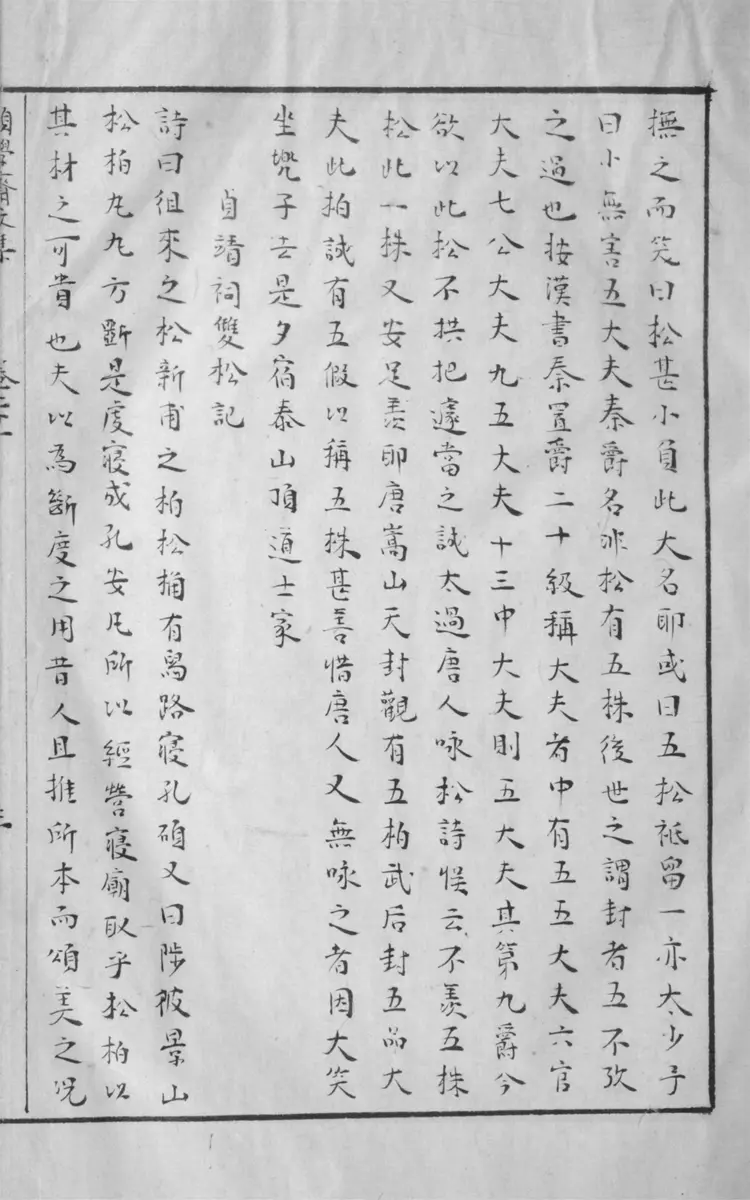 撫之而笑曰松甚小負此大名耶或曰五松祗留一亦太少予
曰小無害五大夫秦爵名非松有五株後世之謂封者五不攷
之過也按漢書秦置爵二十級稱大夫者中有五五大夫六官
大夫七公大夫九五大夫十三中大夫則五大夫其第九爵今
欲以此松不拱把遽當之誠太過唐人咏松詩悮云不羨五株
松此一株又安足羨耶唐嵩山天封觀有五柏武后封五品大
夫此柏誠有五假以稱五株甚善惜唐人又無咏之者因大笑
坐凳子去是夕宿泰山頂道士家
貞靖祠雙松記
詩曰徂來之松新甫之柏松桷有舄路寢孔碩又曰陟彼景山
松柏丸丸方斲是虔寢成孔安凡所以經營寢廟取乎松柏以
其材之可貴也夫以為斲度之用昔人且推所本而頌美之况
學齋文集 卷二十一 三